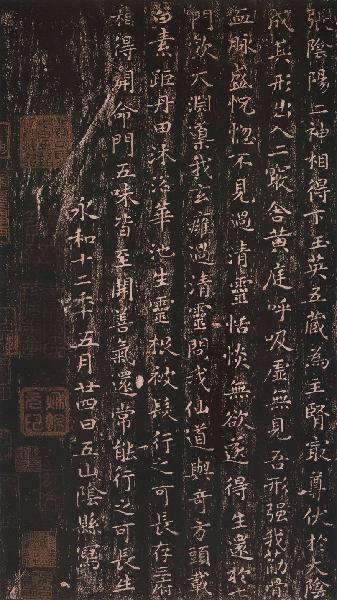 陰陽二神相得下玉英五藏為主腎最尊伏於大陰
成其形出入二竅舍黃庭呼吸虛無見吾形强我筋骨
血脉盛恍惚不見過清靈恬惔無欲遂得生還於七
門飲大淵稟我玄雍過清靈問我仙道與奇方頭載
白素距丹田沐浴華池生靈根被髮行之可長存二府
相得開命門五味皆至開善氣還常能行之可長生
永和十二年五月廿四日五山陰縣寫